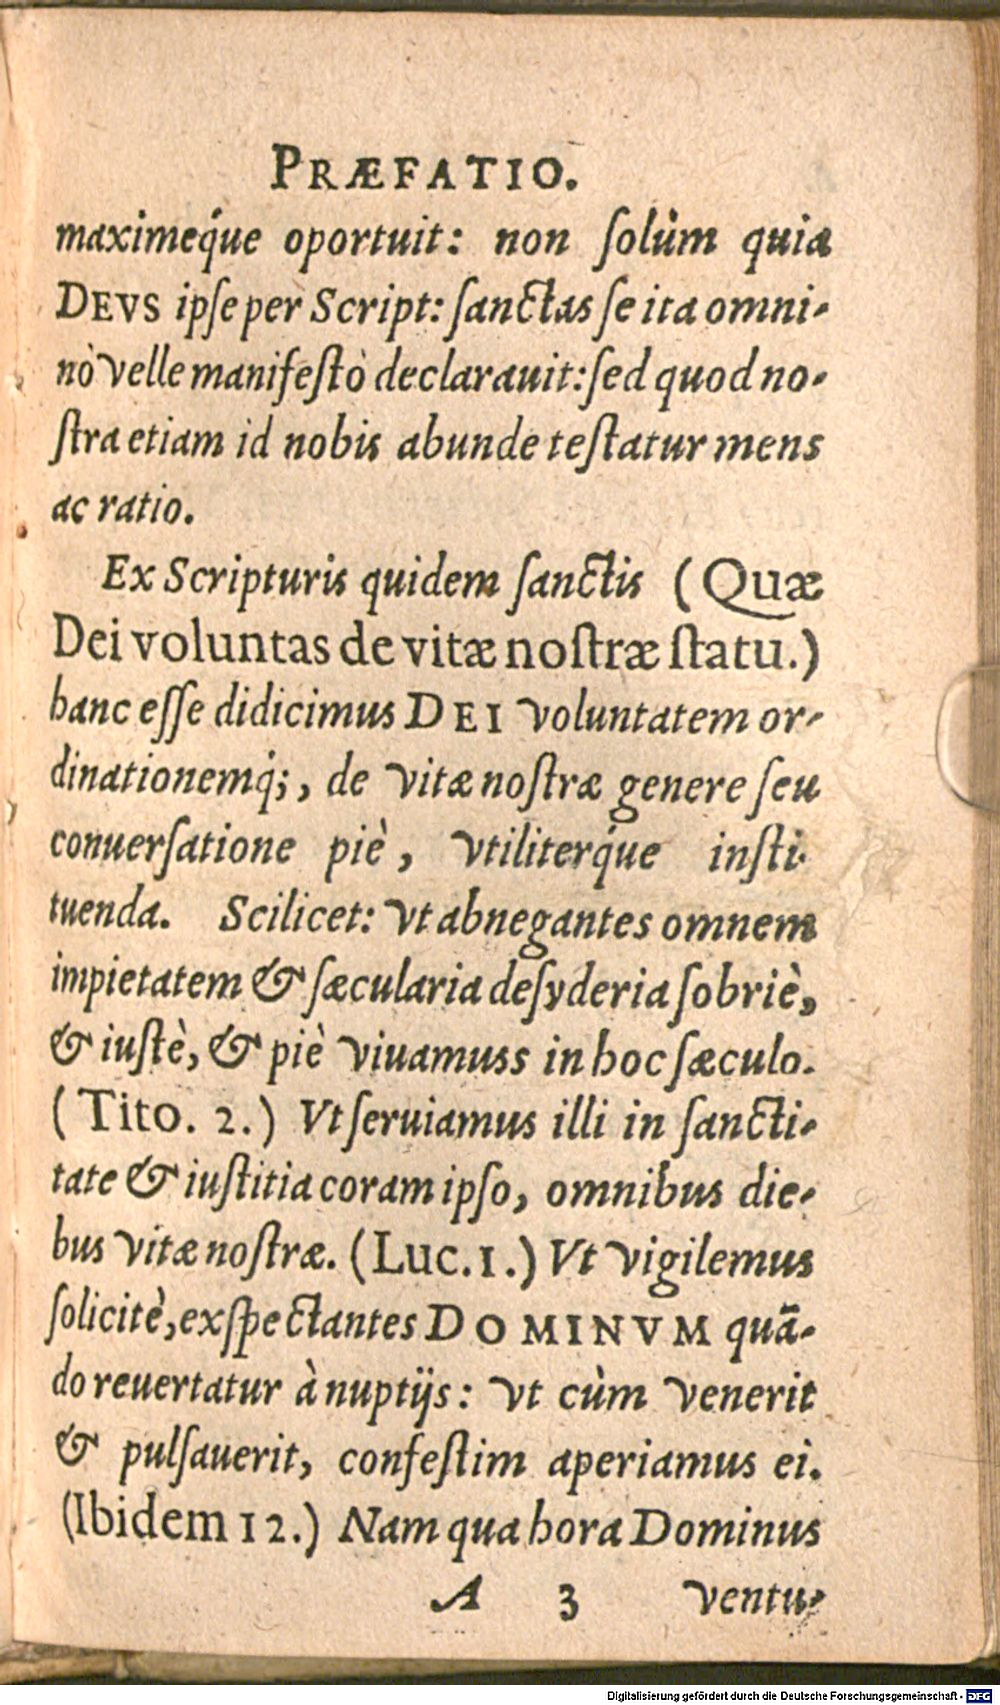 PRÆFATIO.
maximeq́ue oportuit: non ſolùm quia
DEVS ipſe per Script: ſanctas ſe ita omni-
nò velle manifeſtò declarauit: ſed quod no-
ſtra etiam id nobis abunde teſtatur mens
ac ratio.
Ex Scripturis quidem ſanctis (Quæ
Dei voluntas de vitæ noſtræ ſtatu.)
hanc eſſe didicimus DEI voluntatem or-
dinationemq́;, de vitæ noſtræ genere ſeu
conuerſatione piè, vtiliterq́ue inſti-
tuenda. Scilicet: vt abnegantes omnem
impietatem & ſæcularia deſyderia ſobriè,
& iuſtè, & piè viuamuss in hoc ſæculo.
(Tito. 2.) Vt ſeruiamus illi in ſancti-
tate & iuſtitia coram ipſo, omnibus die-
bus vitæ noſtræ. (Luc. 1.) Vt vigilemus
ſolicitè, exſpectantes DOMINVM quã-
do reuertatur à nuptijs: vt cùm venerit
& pulſauerit, confeſtim aperiamus ei.
(Ibidem 12.) Nam qua hora Dominus
A 3 ventu-
Digitalisierung gefördert durch die Deutsche Forschungsgemeinschaft - DFG